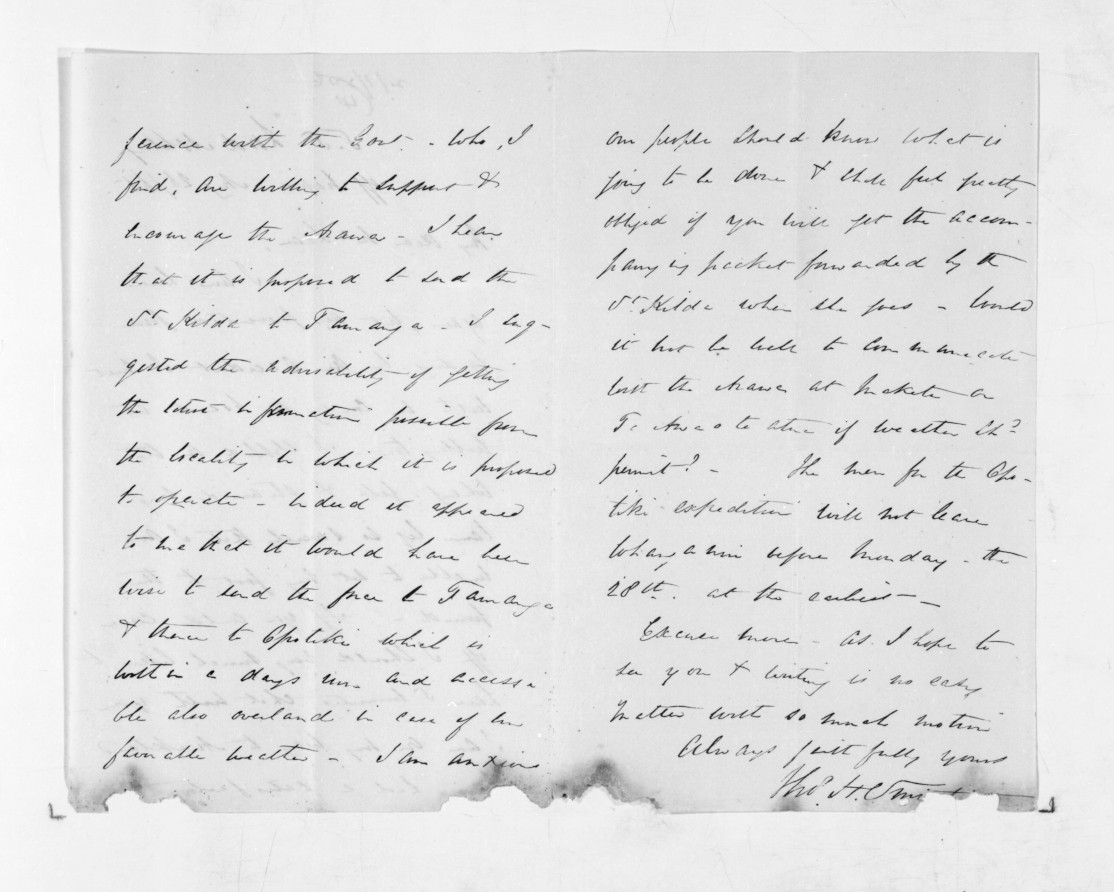 ference with the Govt. - who, I
find, are willing to support &
encourage the Arawa - I hear
that it is proposed to send the
St Kilda to Tauranga - I sug-
gested the advisability of getting
the latest information possible from
the locality in which it is proposed
to operate - indeed it appeared
to me that it would have been
wise to send the force to Tauranga
& thence to Opotiki which is
within a days run and accessi
ble also overland in case of un
favorable weather - I am anxious
our people should know what is
going to be done & shall feel greatly
obliged if you will get the accom-
panying packet forwarded by the
St Kilda when she goes - Would
it not be well to communicate
with the Arawa at Maketu or
Te Awa o te atua if weather shd
permit? - The men for the Opo-
tiki expedition will not leave
Whanganui before Monday - the
28th. at the earliest -
Excuse more - as I hope to
see you & writing is no easy
matter with so much motion
Always faithfully yours
Thos. H. Smith